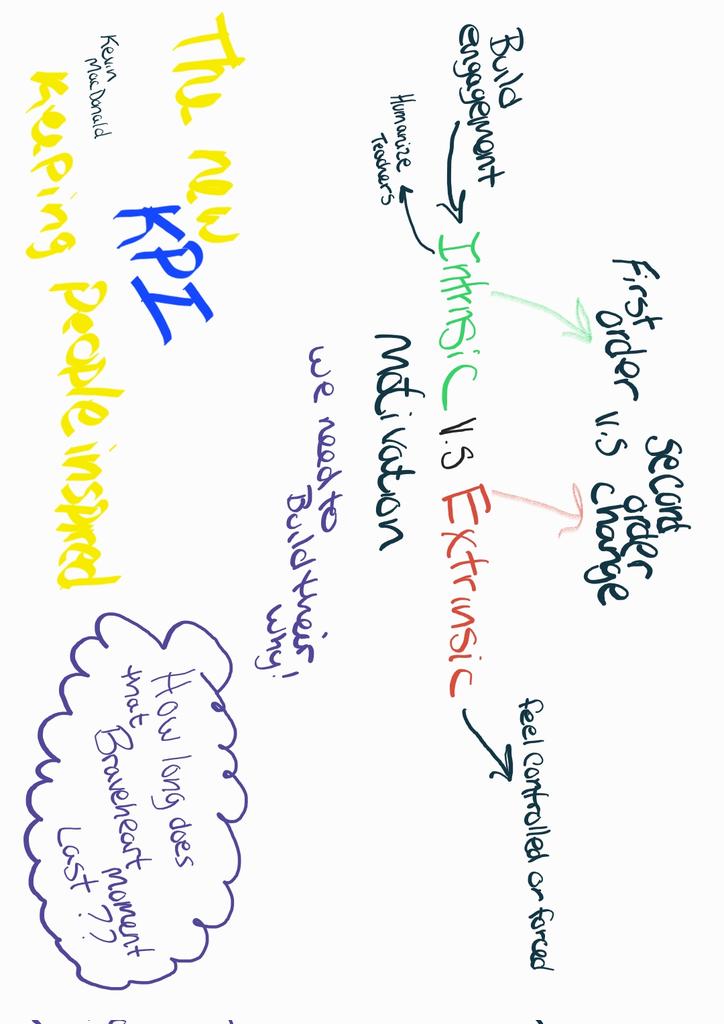 First
order v.s
Second
order
change
Build
engagement
feel controlled or forced
Intrinsic v.s Extrinsic
Motivation
Humanize
Teachers
we need to
Build their
why!
The new
KPI
Kevin
MacDonald
Keeping people inspired
How long does
that Braveheart moment
Last??